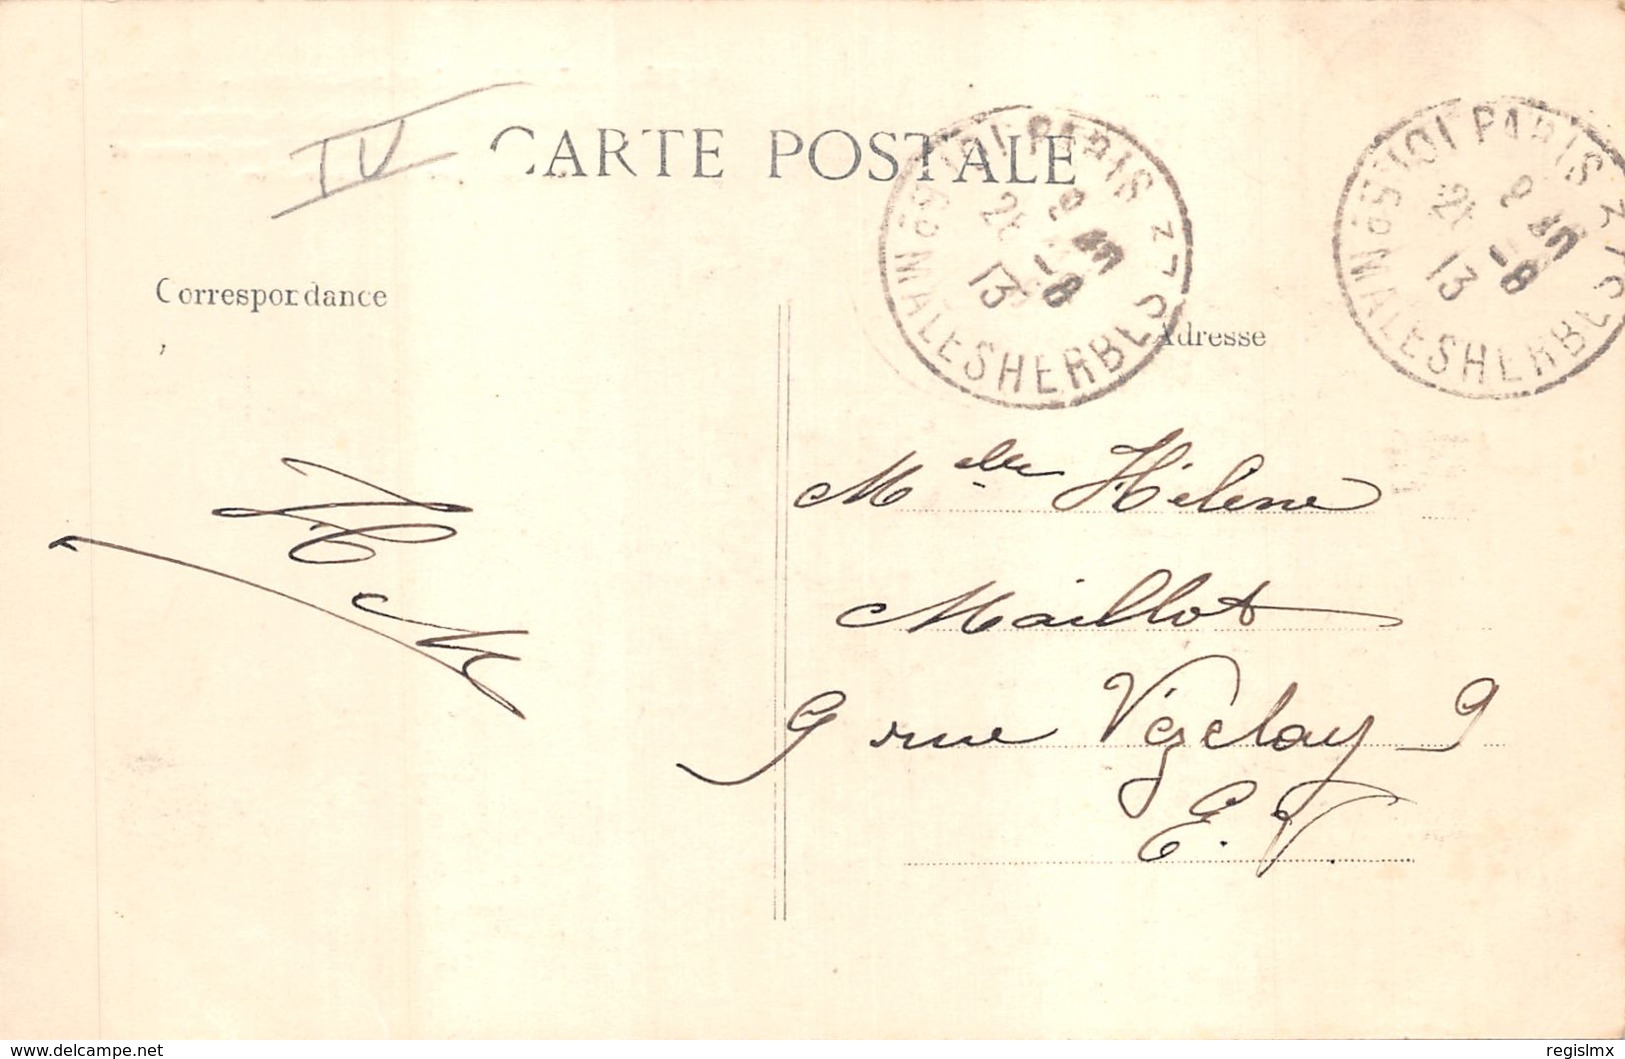 IV
CARTE POSTALE
PARIS 101
Bd MALESHERBES
13
PARIS 101
Bd MALESHERBES
13
Correspondance
Adresse
Melle Hélène
Maillot
9 rue Vézelay 9
E. V.
www.delcampe.net
regislmx